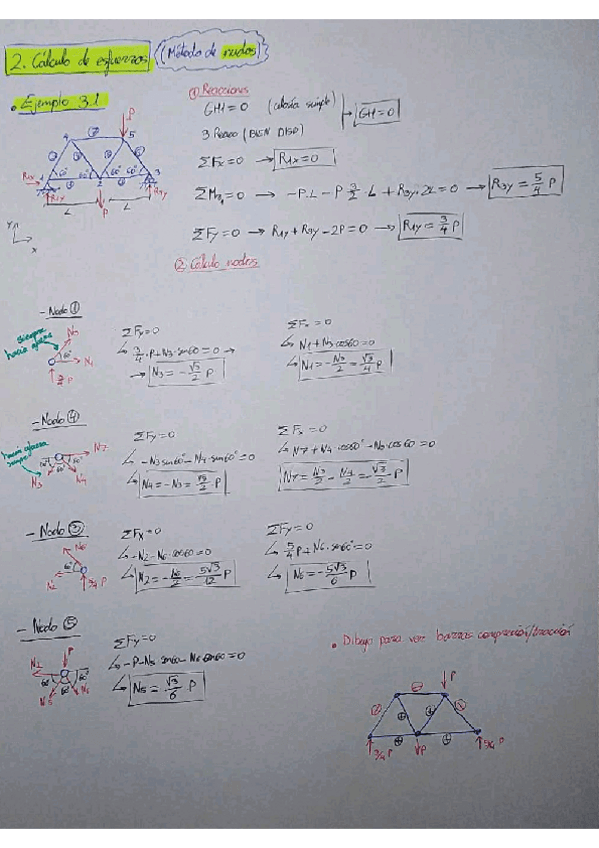 2. Cálculo de esfuerzos (Método de nudos)
• Ejemplo 3.1
① Reacciones
GHI=0 (celosía simple) → GHI=0
3 Reacc (BIEN DISP)
ΣFx=0 → R1x=0
ΣM=0 → -P·L - P 3/2·L + R3y·2L=0 → R3y = 5/4 P
ΣFy=0 → R1y + R3y - 2P=0 → R1y = 3/4 P
4 5 P
60° 60° 60° 60°
R1x 1 2 3
R1y P R3y
L L
y
x
② Cálculo nudos
- Nodo ①
siempre hacia afuera
N3
60°
N1
3/4 P
ΣFy=0
3/4·P+N3·sen60=0 →
→ N3 = -√3/2 P
ΣFx=0
N1+N3·cos60=0
N1 = -N3/2 = √3/4 P
- Nodo ④
hacia afuera siempre
N7
60° 60° 60°
N3 N4
ΣFy=0
-N3sen60°-N4·sen60°=0
N4=-N3=√3/2·P
ΣFx=0
N7+N4·cos60°-N3·cos60=0
N7=N3/2-N4/2=-√3/2·P
- Nodo ③
N6
60°
N2
5/4 P
ΣFx=0
-N2-N6·cos60=0
N2=-N6/2=5√3/12 P
ΣFy=0
5/4P+N6·sen60°=0
N6=-5√3/6 P
- Nodo ⑤
P
N7
60° 60° 60°
N5 N6
ΣFy=0
-P-N5·sen60-N6·sen60=0
N5=√3/6 P
• Dibujo para ver barras compresión/tracción
P
3/4 P P 5/4 P